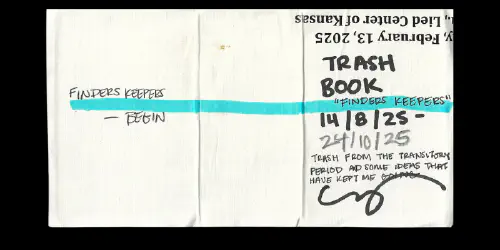 , Lied Center of Kansas
y, February 13, 2025
FINDERS KEEPERS
— BEGIN
TRASH
BOOK
"FINDERS KEEPERS"
14/8/25 -
24/10/25
TRASH FROM THE TRANSITORY
PERIOD AD SOME IDEAS THAT
HAVE KEPT ME GOING